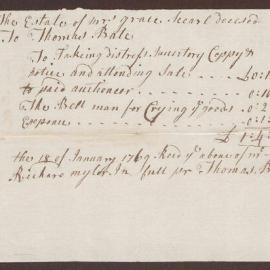 The Estate of mrs grace Searl decesed
To Thomas Bale
To Taking distress Inventory Coppy &
notice and attending Sale - - - £0:1
to paid auctioneer - - - 0:10
The Bell man for Crying ye goods - 0:2
Expence - - - 0:1
£ 1:4:
the 18 of January 1769 Recd ye above of mr
Richard mylor In full pr Thomas B